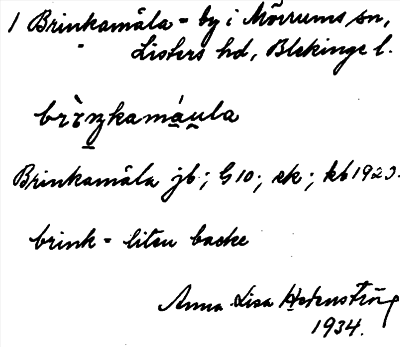 1 Brinkamåla - by i Mörrums sn,
Listers hd, Blekinge l.
brìnkamá̱u̯la
Brinkamåla jb; G10; ek; kb 1923.
brink = liten backe
Anna Lisa
1934.